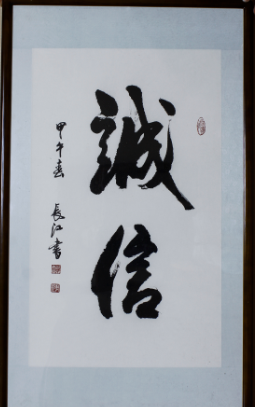 誠信
甲午春
長江書